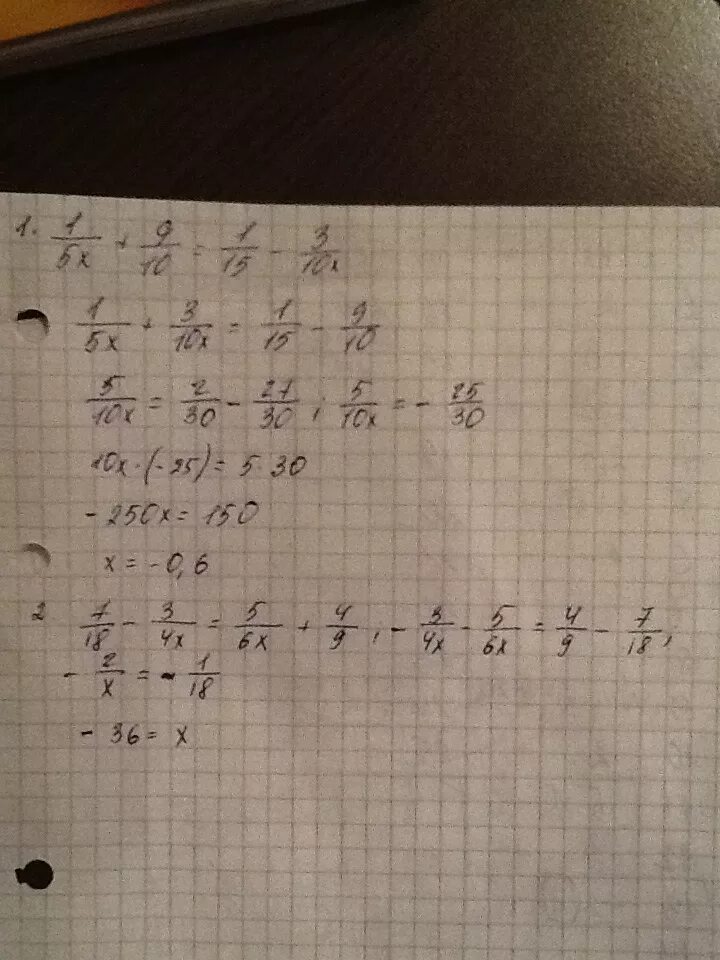 1. 1/5x + 9/10 = 1/15 - 3/10x
1/5x + 3/10x = 1/15 - 9/10
5/10x = 2/30 - 27/30 ; 5/10x = - 25/30
10x·(-25) = 5·30
- 250x = 150
x = -0,6
2 7/18 - 3/4x = 5/6x + 4/9 , - 3/4x - 5/6x = 4/9 - 7/18 ,
- 2/x = - 1/18
- 36 = x